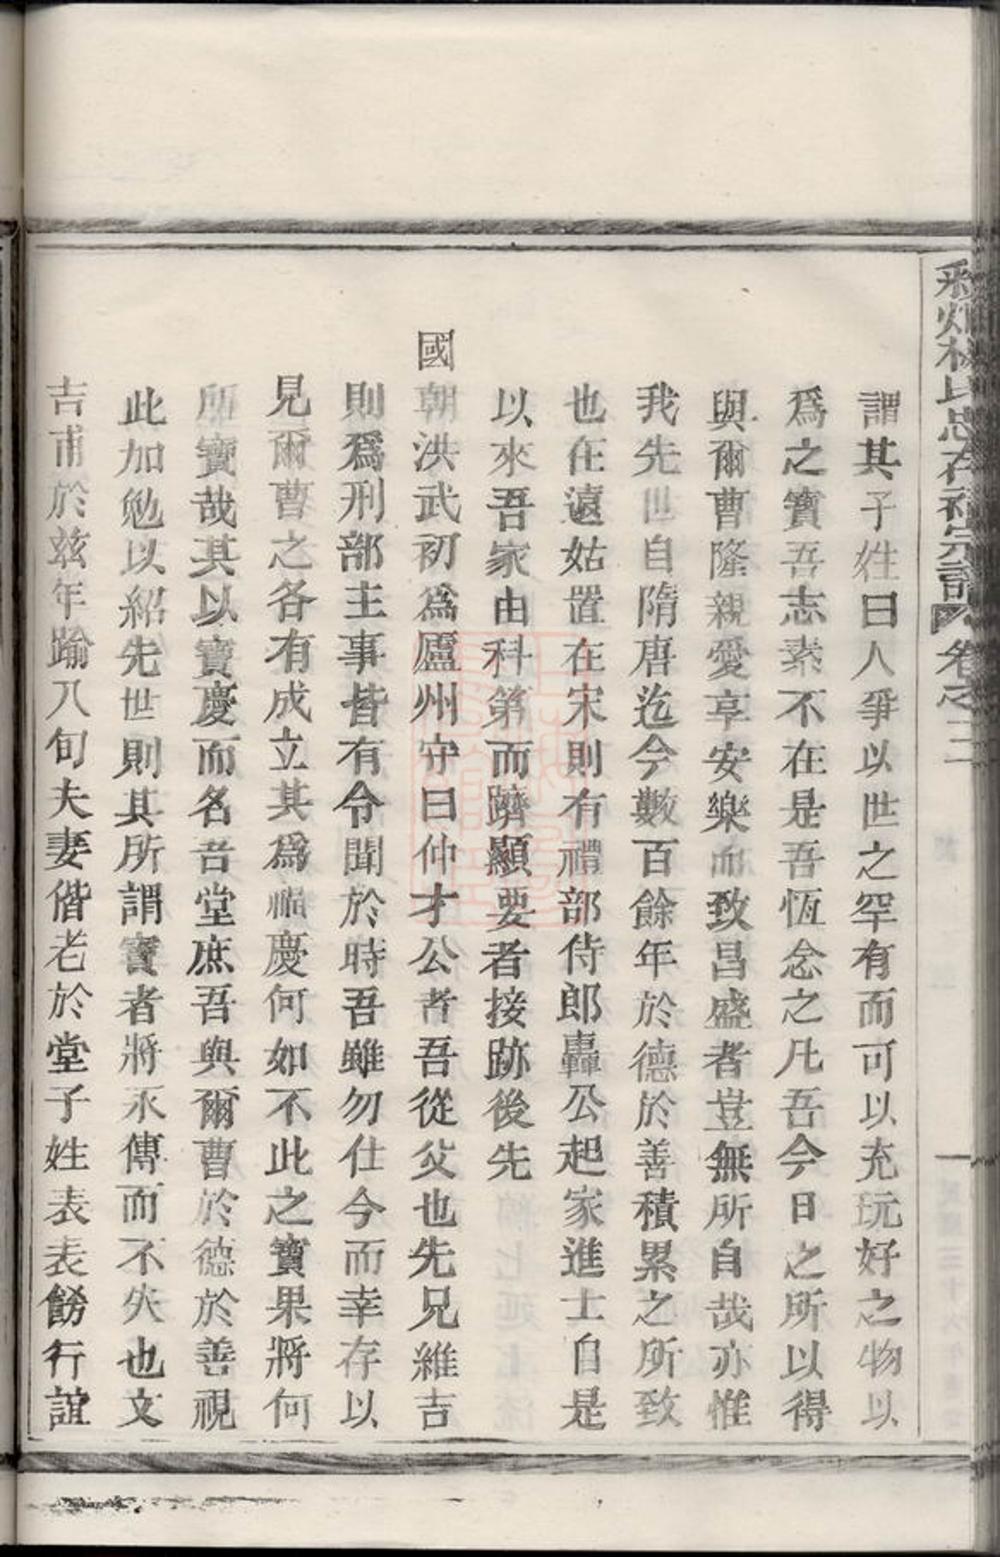 林氏忠存禮宗譜 卷之二
謂其子姓曰人爭以世之罕有而可以充玩好之物以
爲之寶吾志素不在是吾恆念之凡吾今日之所以得
與爾曹隆親愛享安樂而致昌盛者豈無所自哉亦惟
我先世自隋唐迄今數百餘年於德於善積累之所致
也在遠姑置在宋則有禮部侍郎轟公起家進士自是
以來吾家由科第而躋顯要者接跡後先
國朝洪武初爲廬州守曰仲才公者吾從父也先兄維吉
則爲刑部主事皆有令聞於時吾雖勿仕今而幸存以
見爾曹之各有成立其爲福慶何如不此之寶果將何
所寶哉其以寶慶而名吾堂庶吾與爾曹於德於善視
此加勉以紹先世則其所謂寶者將永傳而不失也文
吉甫於茲年踰八旬夫妻偕老於堂子姓表表餝行誼